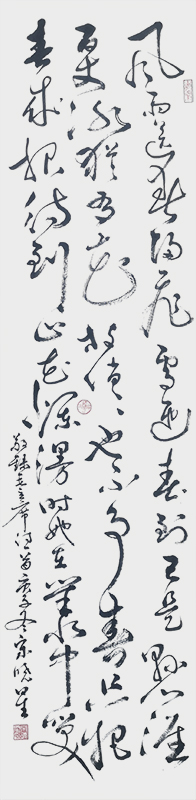 风雨送春归飞雪迎春到已是悬崖
百丈冰犹有花枝俏俏也不争春只把
春来报待到山花烂漫时她在丛中笑
敬录毛主席词庚子冬晓星